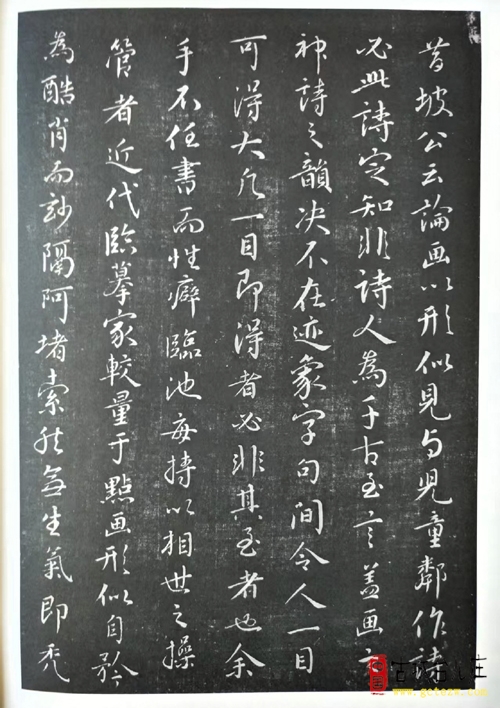 昔坡公云論画以形似見与児童鄰作詩
必此詩定知非詩人為千古至言蓋画之
神詩之韻决不在迹象字句間令人一目
可得大凡一目即得者必非其至者也余
手不任書而性癖臨池每摶以相世之操
管者近代臨摹家較量于點画形似自矜
為酷肖而玅隔阿堵索然無生氣即秃